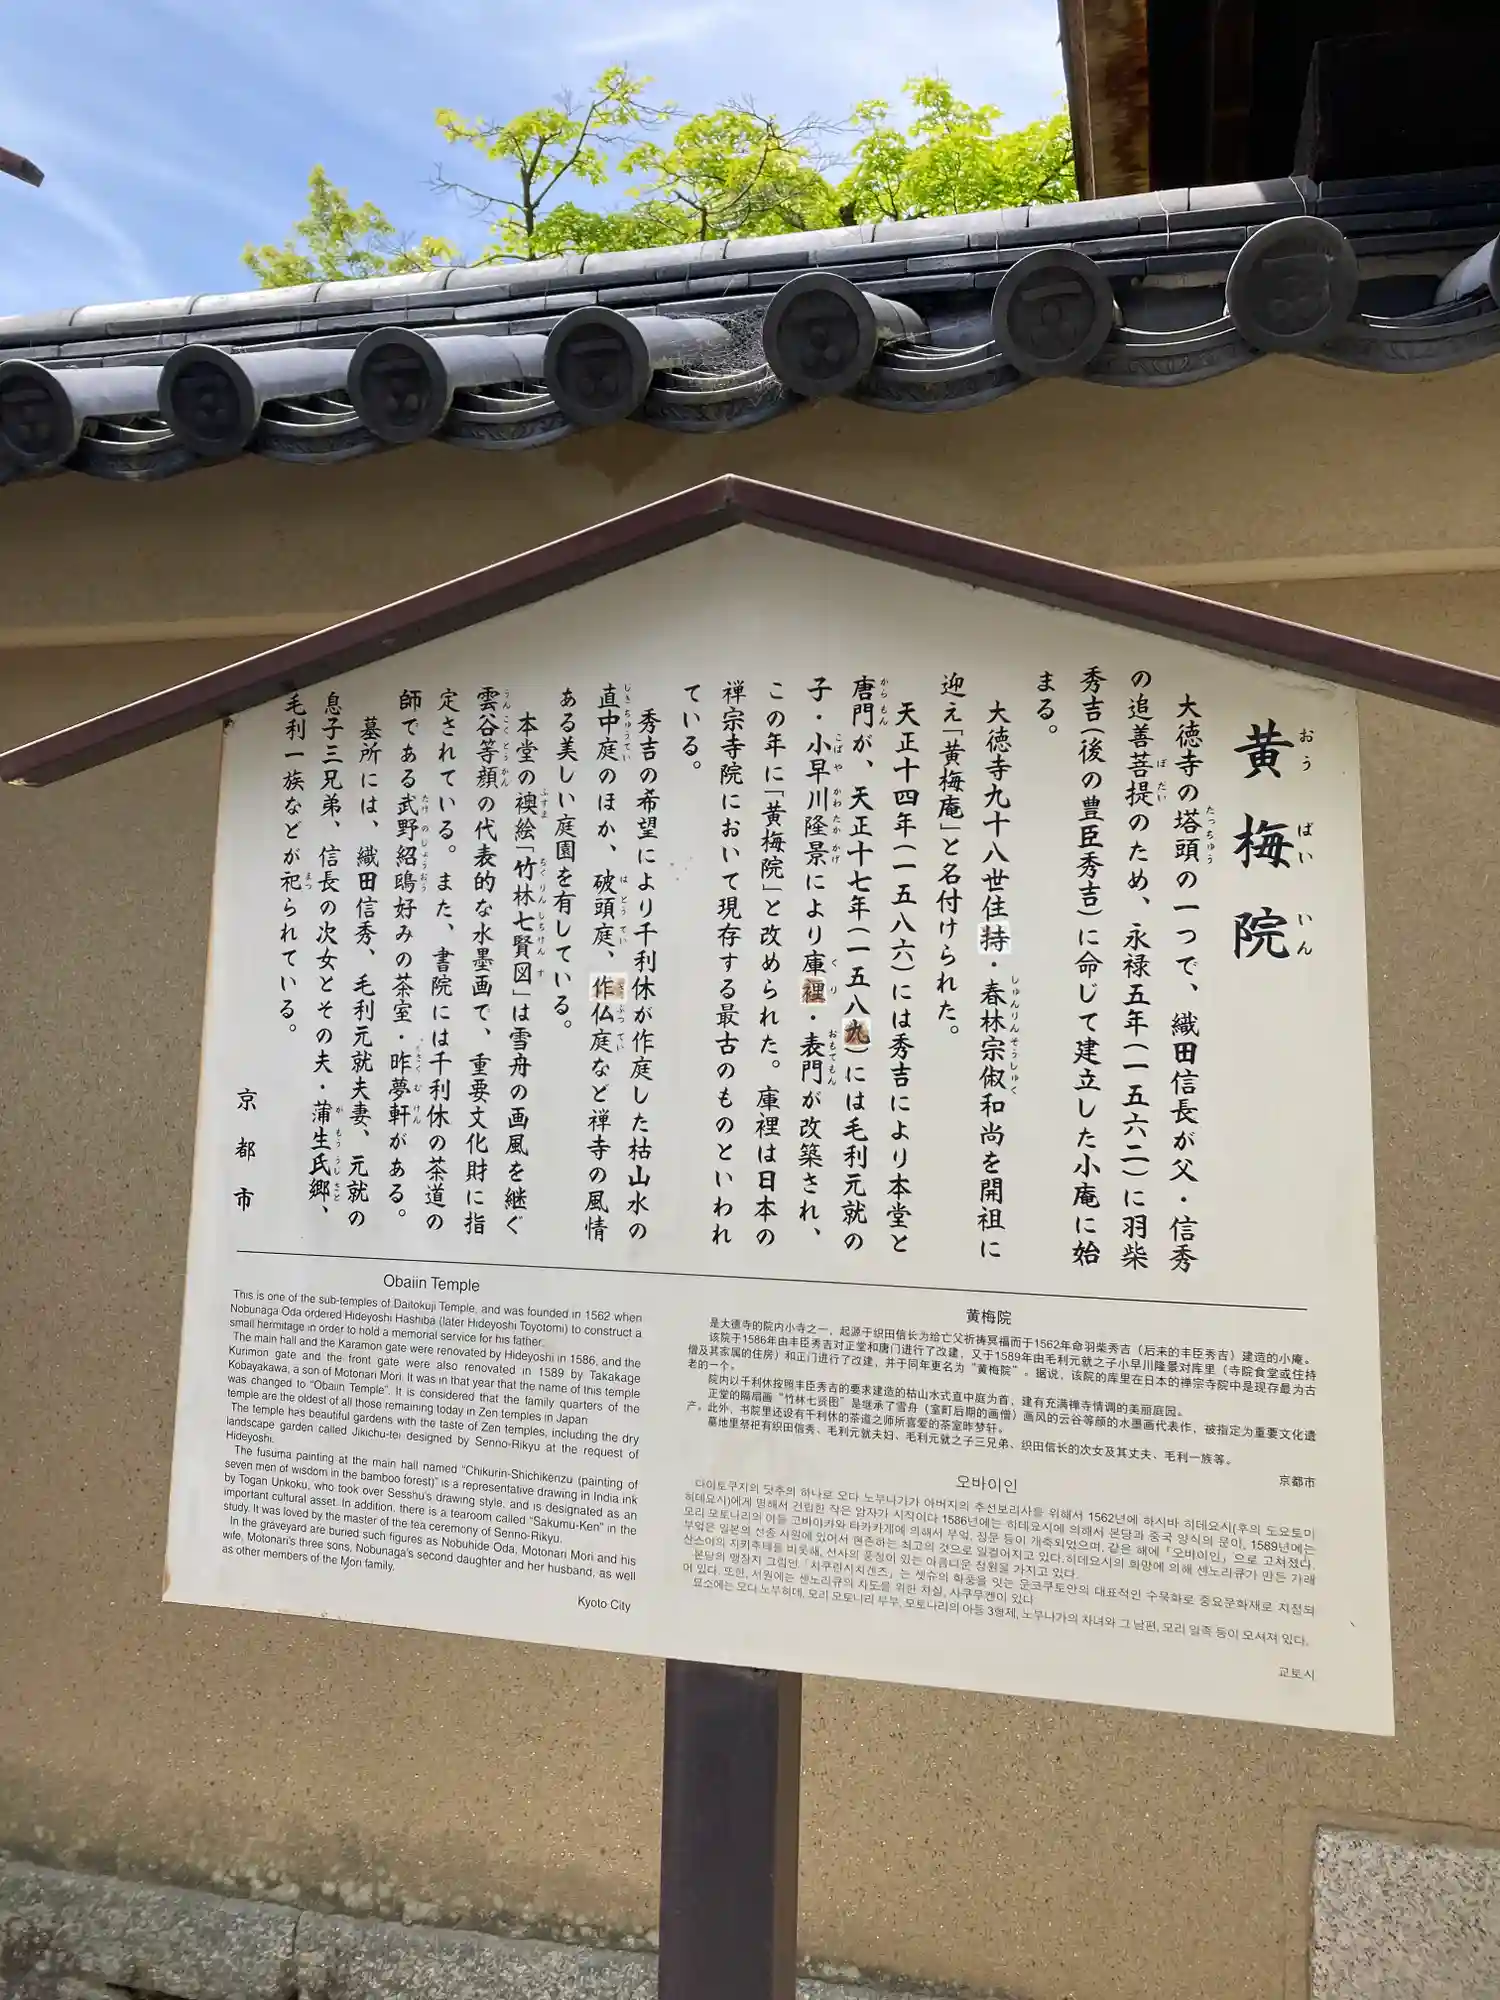 黄梅院
おうばいいん
大徳寺の塔頭の一つで、織田信長が父・信秀
の追善菩提のため、永禄五年(一五六二)に羽柴
秀吉(後の豊臣秀吉)に命じて建立した小庵に始
まる。
大徳寺九十八世住持・春林宗俶和尚を開祖に
迎え「黄梅庵」と名付けられた。
天正十四年(一五八六)には秀吉により本堂と
唐門が、天正十七年(一五八九)には毛利元就の
子・小早川隆景により庫裡・表門が改築され、
この年に「黄梅院」と改められた。庫裡は日本の
禅宗寺院において現存する最古のものといわれ
ている。
秀吉の希望により千利休が作庭した枯山水の
直中庭のほか、破頭庭、作仏庭など禅寺の風情
ある美しい庭園を有している。
本堂の襖絵「竹林七賢図」は雪舟の画風を継ぐ
雲谷等顔の代表的な水墨画で、重要文化財に指
定されている。また、書院には千利休の茶道の
師である武野紹鴎好みの茶室・昨夢軒がある。
墓所には、織田信秀、毛利元就夫妻、元就の
息子三兄弟、信長の次女とその夫・蒲生氏郷、
毛利一族などが祀られている。
京都市
Obaiin Temple
This is one of the sub-temples of Daitokuji Temple, and was founded in 1562 when
Nobunaga Oda ordered Hideyoshi Hashiba (later Hideyoshi Toyotomi) to construct a
small hermitage in order to hold a memorial service for his father.
The main hall and the Karamon gate were renovated by Hideyoshi in 1586, and the
Kurimon gate and the front gate were also renovated in 1589 by Takakage
Kobayakawa, a son of Motonari Mori. It was in that year that the name of this temple
was changed to “Obaiin Temple”. It is considered that the family quarters of the
temple are the oldest of all those remaining today in Zen temples in Japan
The temple has beautiful gardens with the taste of Zen temples, including the dry
landscape garden called Jikichu-tei designed by Senno-Rikyu at the request of
Hideyoshi.
The fusuma painting at the main hall named “Chikurin-Shichikenzu (painting of
seven men of wisdom in the bamboo forest)” is a representative drawing in India ink
by Togan Unkoku, who took over Sesshu's drawing style, and is designated as an
important cultural asset. In addition, there is a tearoom called “Sakumu-Ken” in the
study. It was loved by the master of the tea ceremony of Senno-Rikyu.
In the graveyard are buried such figures as Nobuhide Oda, Motonari Mori and his
wife, Motonari's three sons, Nobunaga's second daughter and her husband, as well
as other members of the Mori family.
Kyoto City
黄梅院
是大德寺的院内小寺之一，起源于织田信长为给亡父祈祷冥福而于1562年命羽柴秀吉（后来的丰臣秀吉）建造的小庵。
该院于1586年由丰臣秀吉对正堂和唐门进行了改建，又于1589年由毛利元就之子小早川隆景对库里（寺院食堂或住持
僧及其家属的住房）和正门进行了改建，并于同年更名为“黄梅院”。据说，该院的库里在日本的禅宗寺院中是现存最为古
老的一个。
院内以千利休按照丰臣秀吉的要求建造的枯山水式直中庭为首，建有充满禅寺情调的美丽庭园。
正堂的隔扇画“竹林七贤图”是继承了雪舟（室町后期的画僧）画风的云谷等颜的水墨画代表作，被指定为重要文化遗
产。此外，书院里还设有千利休的茶道之师所喜爱的茶室昨梦轩。
墓地里祭祀有织田信秀、毛利元就夫妇、毛利元就之子三兄弟、织田信长的次女及其丈夫、毛利一族等。
京都市
오바이인
다이토쿠지의 닷추의 하나로 오다 노부나가가 아버지의 추선보리사를 위해서 1562년에 하시바 히데요시(후의 도요토미
히데요시)에게 명해서 건립한 작은 암자가 시작이다 1586년에는 히데요시에 의해서 본당과 중국 양식의 문이, 1589년에는
모리 모토나리의 아들 고바야카와 타카카게에 의해서 부엌, 정문 등이 개축되었으며, 같은 해에 「오바이인」으로 고쳐졌다.
부엌은 일본의 선종 사원에 있어서 현존하는 최고의 것으로 일컬어지고 있다. 히데요시의 희망에 의해 센노리큐가 만든 가레
산스이의 지키추테를 비롯해, 선사의 풍정이 있는 아름다운 정원을 가지고 있다.
본당의 맹장지 그림인 「치쿠린시치켄즈」는 셋슈의 화풍을 잇는 운코쿠토안의 대표적인 수묵화로 중요문화재로 지정되
어 있다. 또한, 서원에는 센노리큐의 사도를 위한 차실, 사쿠무켄이 있다
묘소에는 오다 노부히데, 모리 모토나리 부부, 모토나리의 아들 3형제, 노부나가의 차녀와 그 남편, 모리 일족 등이 모셔져 있다.
교토시